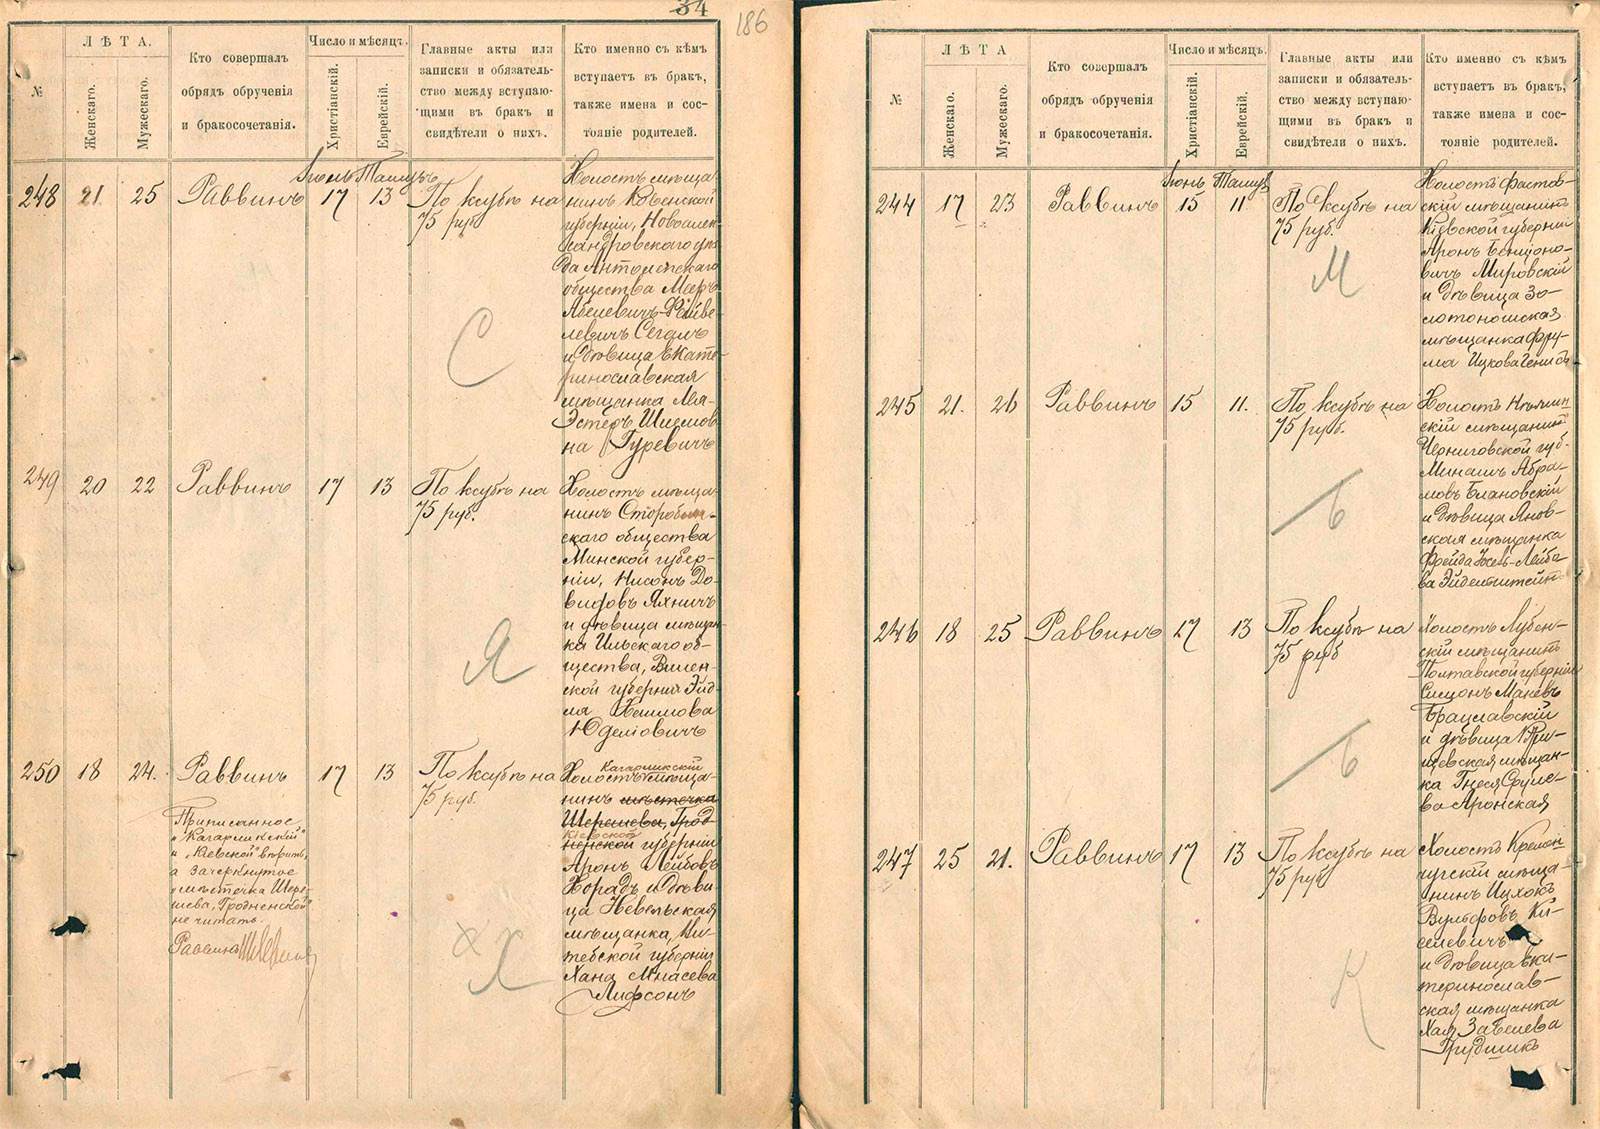 34
186
№
ЛѢТА.
Женскаго.
Мужескаго.
Кто совершалъ
обрядъ обрученія
и бракосочетанія.
Число и мѣсяцъ.
Христіанскій.
Еврейскій.
Главные акты или
записки и обязатель-
ство между вступаю-
щими въ бракъ и
свидѣтели о нихъ.
Кто именно съ кѣмъ
вступаетъ въ бракъ,
также имена и сос-
тояніе родителей.
248
21.
25
Раввинъ
17
13
По ксубѣ на
75 руб.
С
Холостъ мѣща-
нинъ Ковенской
губерніи, Новоалек-
сандровскаго уѣз-
да Антолепскаго
общества Мееръ
Абелевичъ-Файве-
левичъ Сегалъ
и дѣвица Екате-
ринославская
мѣщанка Лея-
Эстеръ Шлемов-
на Гуревичъ
249
20
22
Раввинъ
17
13
По ксубѣ на
75 руб.
Я
Холостъ мѣща-
нинъ Старобин-
скаго общества
Минской губер-
ніи, Нисонъ До-
видовъ Яхничъ
и дѣвица мѣщан-
ка Ильскаго об-
щества, Вилен-
ской губерніи Эйд-
ля
Юделіовичъ
250
18
24.
Раввинъ
17
13
По ксубѣ на
75 руб.
Х
Кагарликскій
Холостъ мѣща-
нинъ мѣстечка
Шерешева, Грод-
Кіевской
ненской губерніи
Аронъ Лейбовъ
Хорадъ и дѣви-
ца Невельская
мѣщанка, Ви-
тебской губерніи
Хана Мнасева
Лифсонъ
Приписанное
„Кагарликскій"
и „Кіевской" вѣрить,
а зачеркнутое
„мѣстечка Шере-
шева, Гродненской"
не читать.
Раввинъ
№
ЛѢТА
Женскаго.
Мужескаго.
Кто совершалъ
обрядъ обрученія
и бракосочетанія.
Число и мѣсяцъ.
Христіанскій.
Еврейскій.
Главные акты или
записки и обязатель-
ство между вступаю-
щими въ бракъ и
свидѣтели о нихъ.
Кто именно съ кѣмъ
вступаетъ въ бракъ,
также имена и сос-
тояніе родителей.
Іюнь Тамузъ
244
17
23
Раввинъ
15
11
По ксубѣ на
75 руб.
М
Холостъ Фастов-
скій мѣщанинъ
Кіевской губерніи
Аронъ Бенціоно-
вичъ Мировскій
и дѣвица Зо-
лотоношская
мѣщанка Фру-
ма Ицкова Генисъ
245
21.
26
Раввинъ
15
11.
По ксубѣ на
75 руб.
Б
Холостъ Нѣжин-
скій мѣщанинъ
Черниговской губ.
Минашъ Абра-
мовъ Блановскій
и дѣвица Янов-
ская мѣщанка
Фрейда Іосель-Лейбо-
ва Эйденштейнъ
246
18
25
Раввинъ
17
13
По ксубѣ на
75 руб
Б
Холостъ Лубен-
скій мѣщанинъ
Полтавской губерніи
Симонъ Маневъ
Брацлавскій
и дѣвица
мѣщан-
ка Гнеся Сруле-
ва Аронская
247
25
21.
Раввинъ
17
13
По ксубѣ на
75 руб
К
Холостъ Кремен-
чугскій мѣща-
нинъ Ицхокъ
Вульфовъ Ки-
селевичъ
и дѣвица Ека-
теринослав-
ская мѣщанка
Хая
Прудникъ